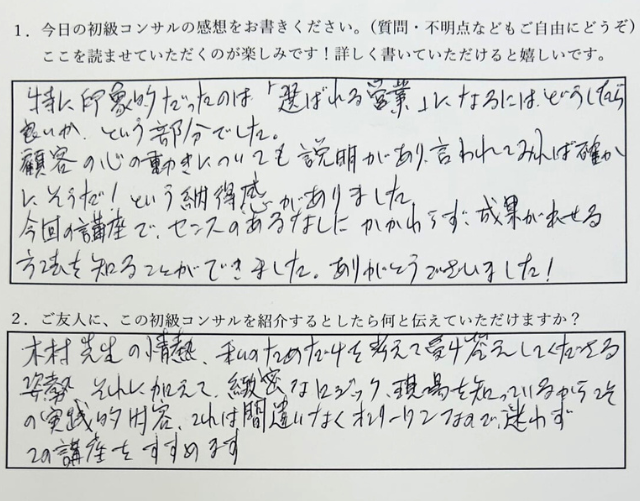 1．今日の初級コンサルの感想をお書きください。（質問・不明点などもご自由にどうぞ）
ここを読ませていただくのが楽しみです！詳しく書いていただけると嬉しいです。
特に印象的だったのは「選ばれる営業」になるには、どうしたら
良いか、という部分でした。
顧客の心の動きについても説明があり、言われてみれば確か
にそうだ！という納得感がありました
今回の講座で、センスのあるなしにかかわらず、成果が出せる
方法を知ることができました。ありがとうございました！
2．ご友人に、この初級コンサルを紹介するとしたら何と伝えていただけますか？
木村先生の情熱、私のためだけを考えて受け答えしてくださる
姿勢、それに加えて、緻密なロジック、現場を知っているからこそ
の実践的内容、これは間違いなくオンリーワンなので、迷わず
この講座をすすめます